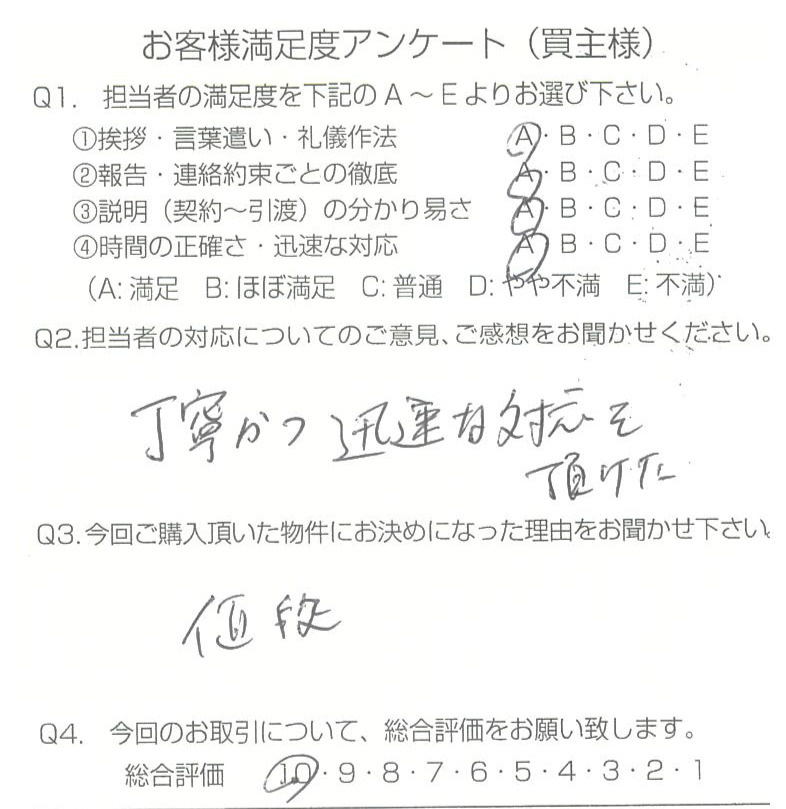 お客様満足度アンケート（買主様）
Q1. 担当者の満足度を下記のA～Eよりお選び下さい。
①挨拶・言葉遣い・礼儀作法 A・B・C・D・E
②報告・連絡約束ごとの徹底 A・B・C・D・E
③説明（契約～引渡）の分かり易さ A・B・C・D・E
④時間の正確さ・迅速な対応 A・B・C・D・E
（A:満足 B:ほぼ満足 C:普通 D:やや不満 E:不満）
Q2.担当者の対応についてのご意見、ご感想をお聞かせください。
丁寧かつ迅速な対応を
頂けた
Q3.今回ご購入頂いた物件にお決めになった理由をお聞かせ下さい。
値段
Q4. 今回のお取引について、総合評価をお願い致します。
総合評価 10・9・8・7・6・5・4・3・2・1